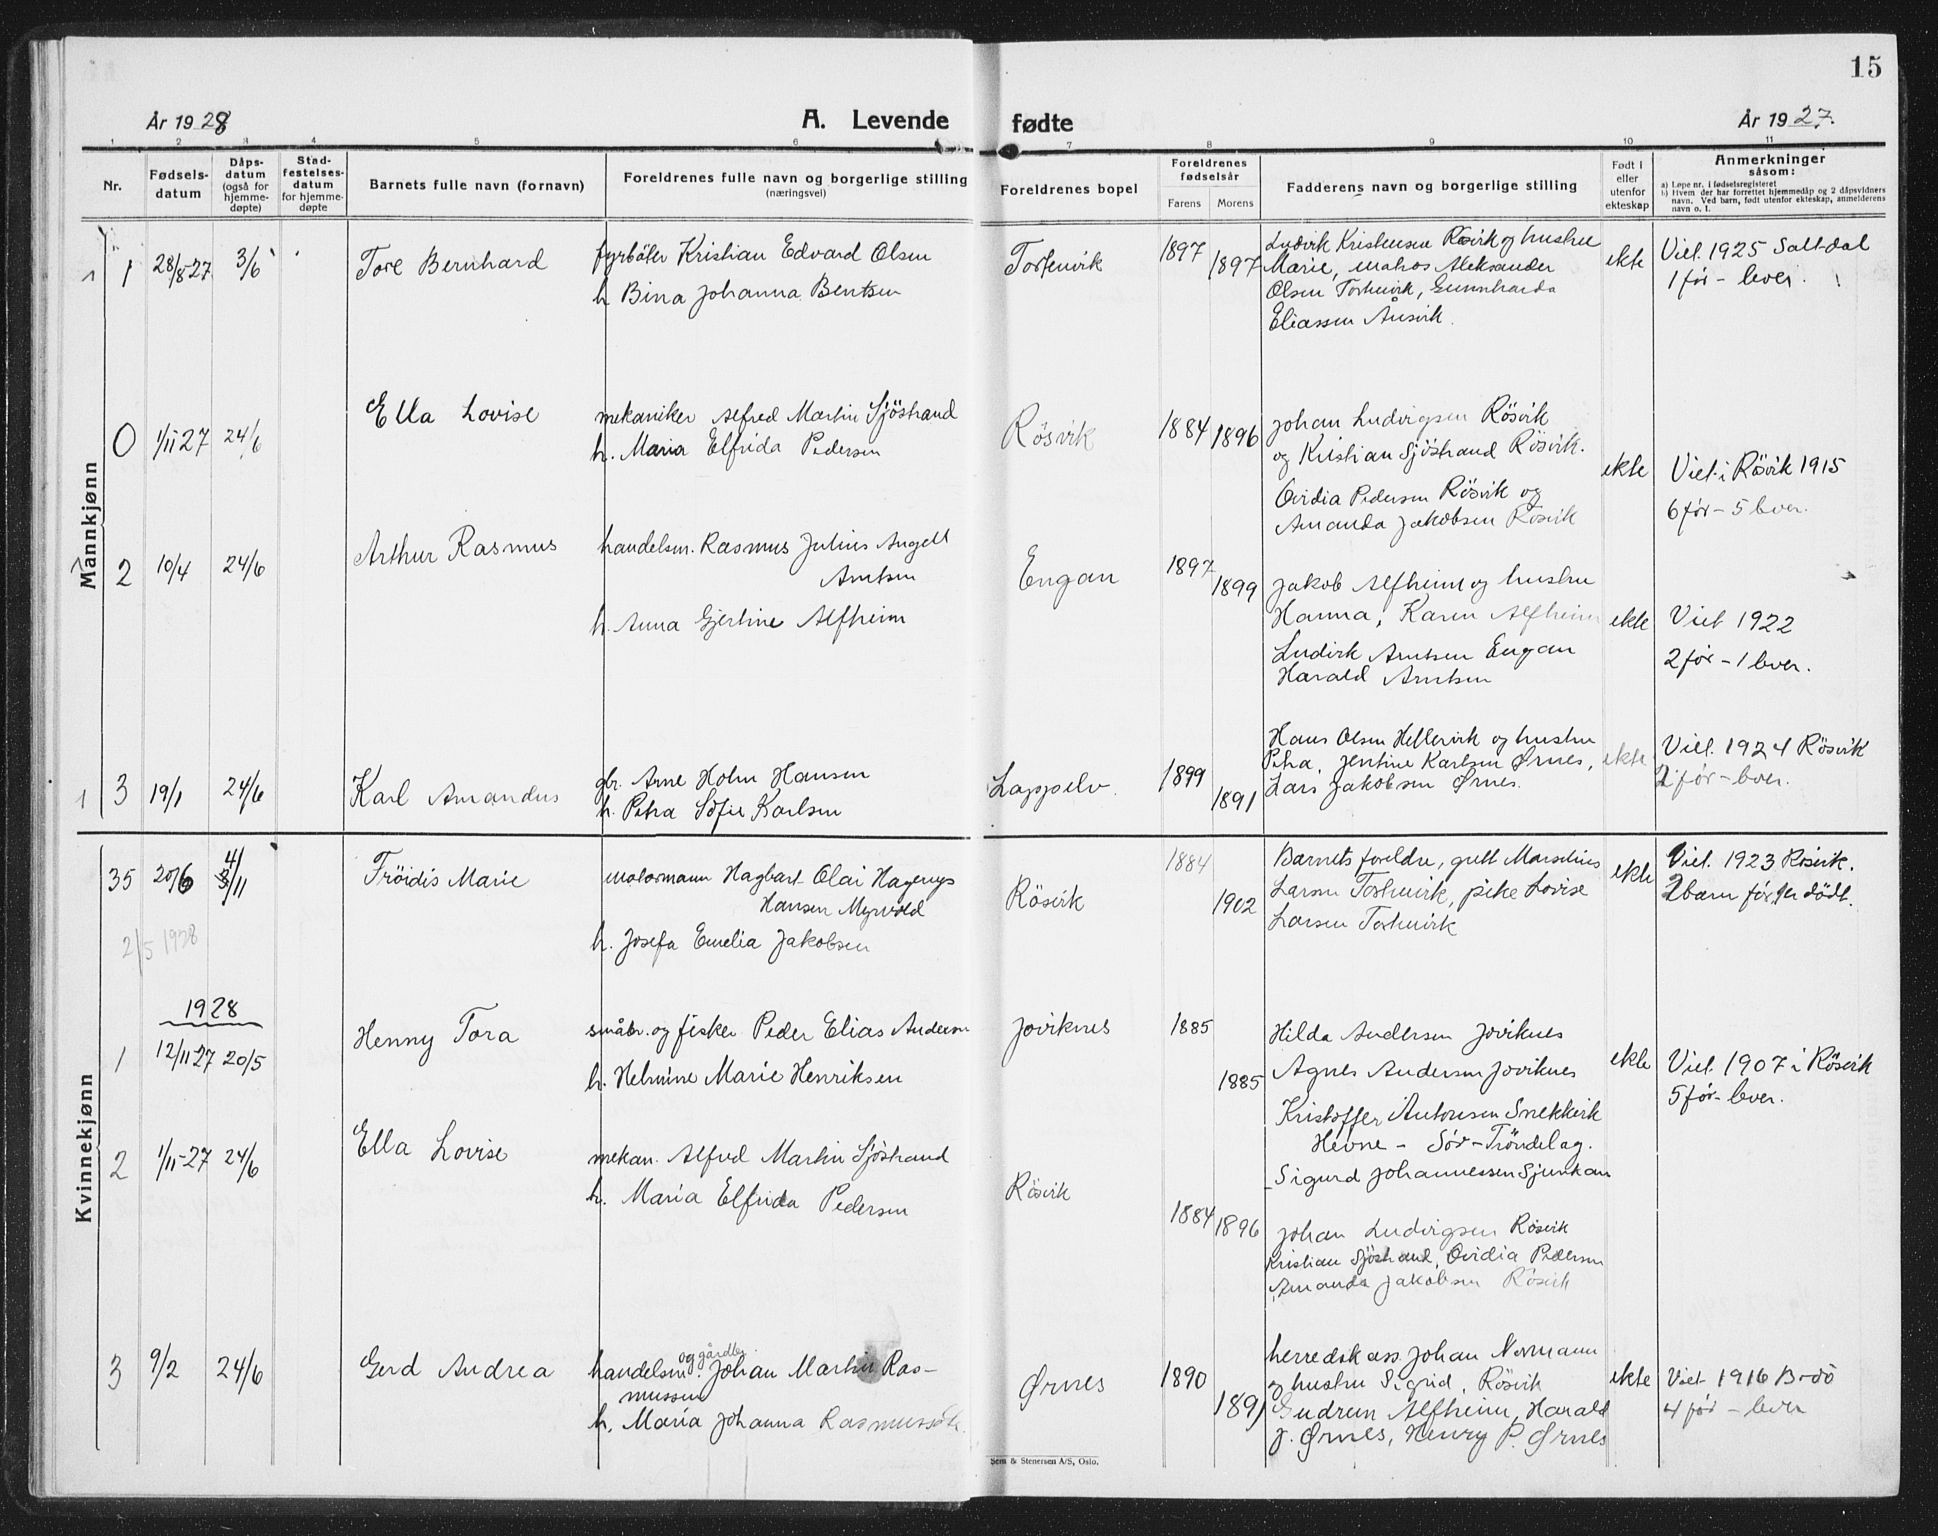 15
År 1928
A. Levende
fødte
År 1927.
1 2 3 4 5 6 7 8 9 10 11
Nr.
Fødsels-
datum
Dåps-
datum
(også for
hjemme-
døpte)
Stad-
festelses-
datum
for hjemme-
døpte
Barnets fulle navn (fornavn)
Foreldrenes fulle navn og borgerlige stilling
(næringsvei)
Foreldrenes bopel
Foreldrenes
fødselsår
Farens Morens
Fadderens navn og borgerlige stilling
Født i
eller
utenfor
ekteskap
Anmerkninger
såsom:
a) Løpe nr. i fødselsregisteret
b) Hvem der har forrettet hjemmedåp og 2 dåpsvidners
navn. Ved barn, født utenfor ekteskap, anmelderens
navn o. l.
Mannkjønn
1 1 28/8-27 3/6
Tore Bernhard
fyrbøter Kristian Edvard Olsen
h. Bina Johanna Bentsen
Torsenvik
1897 1897
Ludvik Kristensen Røsvik og hustru
Marie, matros Aleksander
Olsen Torsenvik, Gunnharda
Eliassen Ånsvik.
ekte
Viet 1925 Saltdal
1 før - lever.
0 1/11 27 24/6
Ella Lovise
mekaniker Alfred Martin Sjöstrand
h. Maria Elfrida Pedersen
Rösvik
1884 1896
Johan Ludvigsen Rösvik
og Kristian Sjöstrand Rösvik.
Ovidia Pedersen Rösvik og
Amanda Jakobsen Rösvik
ekte
Viet i Rösvik 1915
6 før - 5 lever.
2 10/4 24/6
Arthur Rasmus
handelsm. Rasmus Julius Angell
Arntsen
h. Anna Gjertine Alfheim
Engan
1897 1899
Jakob Alfheim og hustru
Hanna, Karen Alfheim
Ludvik Arntsen Engan
Harald Arntsen
ekte
Viet 1922
2 før - 1 lever.
1 3 19/1 24/6
Karl Amandus
gbr. Arne Holm Hansen
h. Petra Sofie Karlsen
Lappelv.
1899 1891
Hans Olsen Hellervik og hustru
Petra, Jentine Karlsen Ørnes,
Lars Jakobsen Ørnes.
ekte
Viet 1924 Rösvik
2 før - lever.
Kvinnekjønn
35 20/6 4/11
2/5 1928
Fröidis Marie
motormann Hagbart Olai Hagerup
Hansen Myrvold
h. Josefa Emelia Jakobsen
Rösvik
1884 1902
Barnets foreldre, gutt Marselius
Larsen Torsenvik, pike Lovise
Larsen Torsenvik
ekte
Viet 1923 Rösvik.
2 barn før, 1 er dödt.
1928
1 12/11-27 20/5
Henny Tora
småbr. og fisker Peder Elias Andersen
h. Helmine Marie Henriksen
Joviknes
1885 1885
Hilda Andersen Joviknes
Agnes Andersen Joviknes
Kristoffer Antonsen Snekkvik
Hevne - Sör-Tröndelag.
Sigurd Johannessen Sjunkan
ekte
Viet 1907 i Rösvik
5 før - lever.
2 1/11-27 24/6
Ella Lovise
mekan. Alfred Martin Sjöstrand
h. Maria Elfrida Pedersen
Rösvik
1884 1896
Johan Ludvigsen Rösvik
Kristian Sjöstrand, Ovidia Pedersen
Amanda Jakobsen Rösvik
3 9/2 24/6
Gerd Andrea
og gårdbr.
handelsm. Johan Martin Ras-
mussen
h. Maria Johanna
Ørnes
1890 1891
herredskass. Johan Normann
og hustru Sigrid, Rösvik
Gudrun Alfheim, Harald
J. Ørnes, Henry P. Ørnes
ekte
Viet 1916 Bodö
4 før - lever
Sem & Stenersen A/S, Oslo.